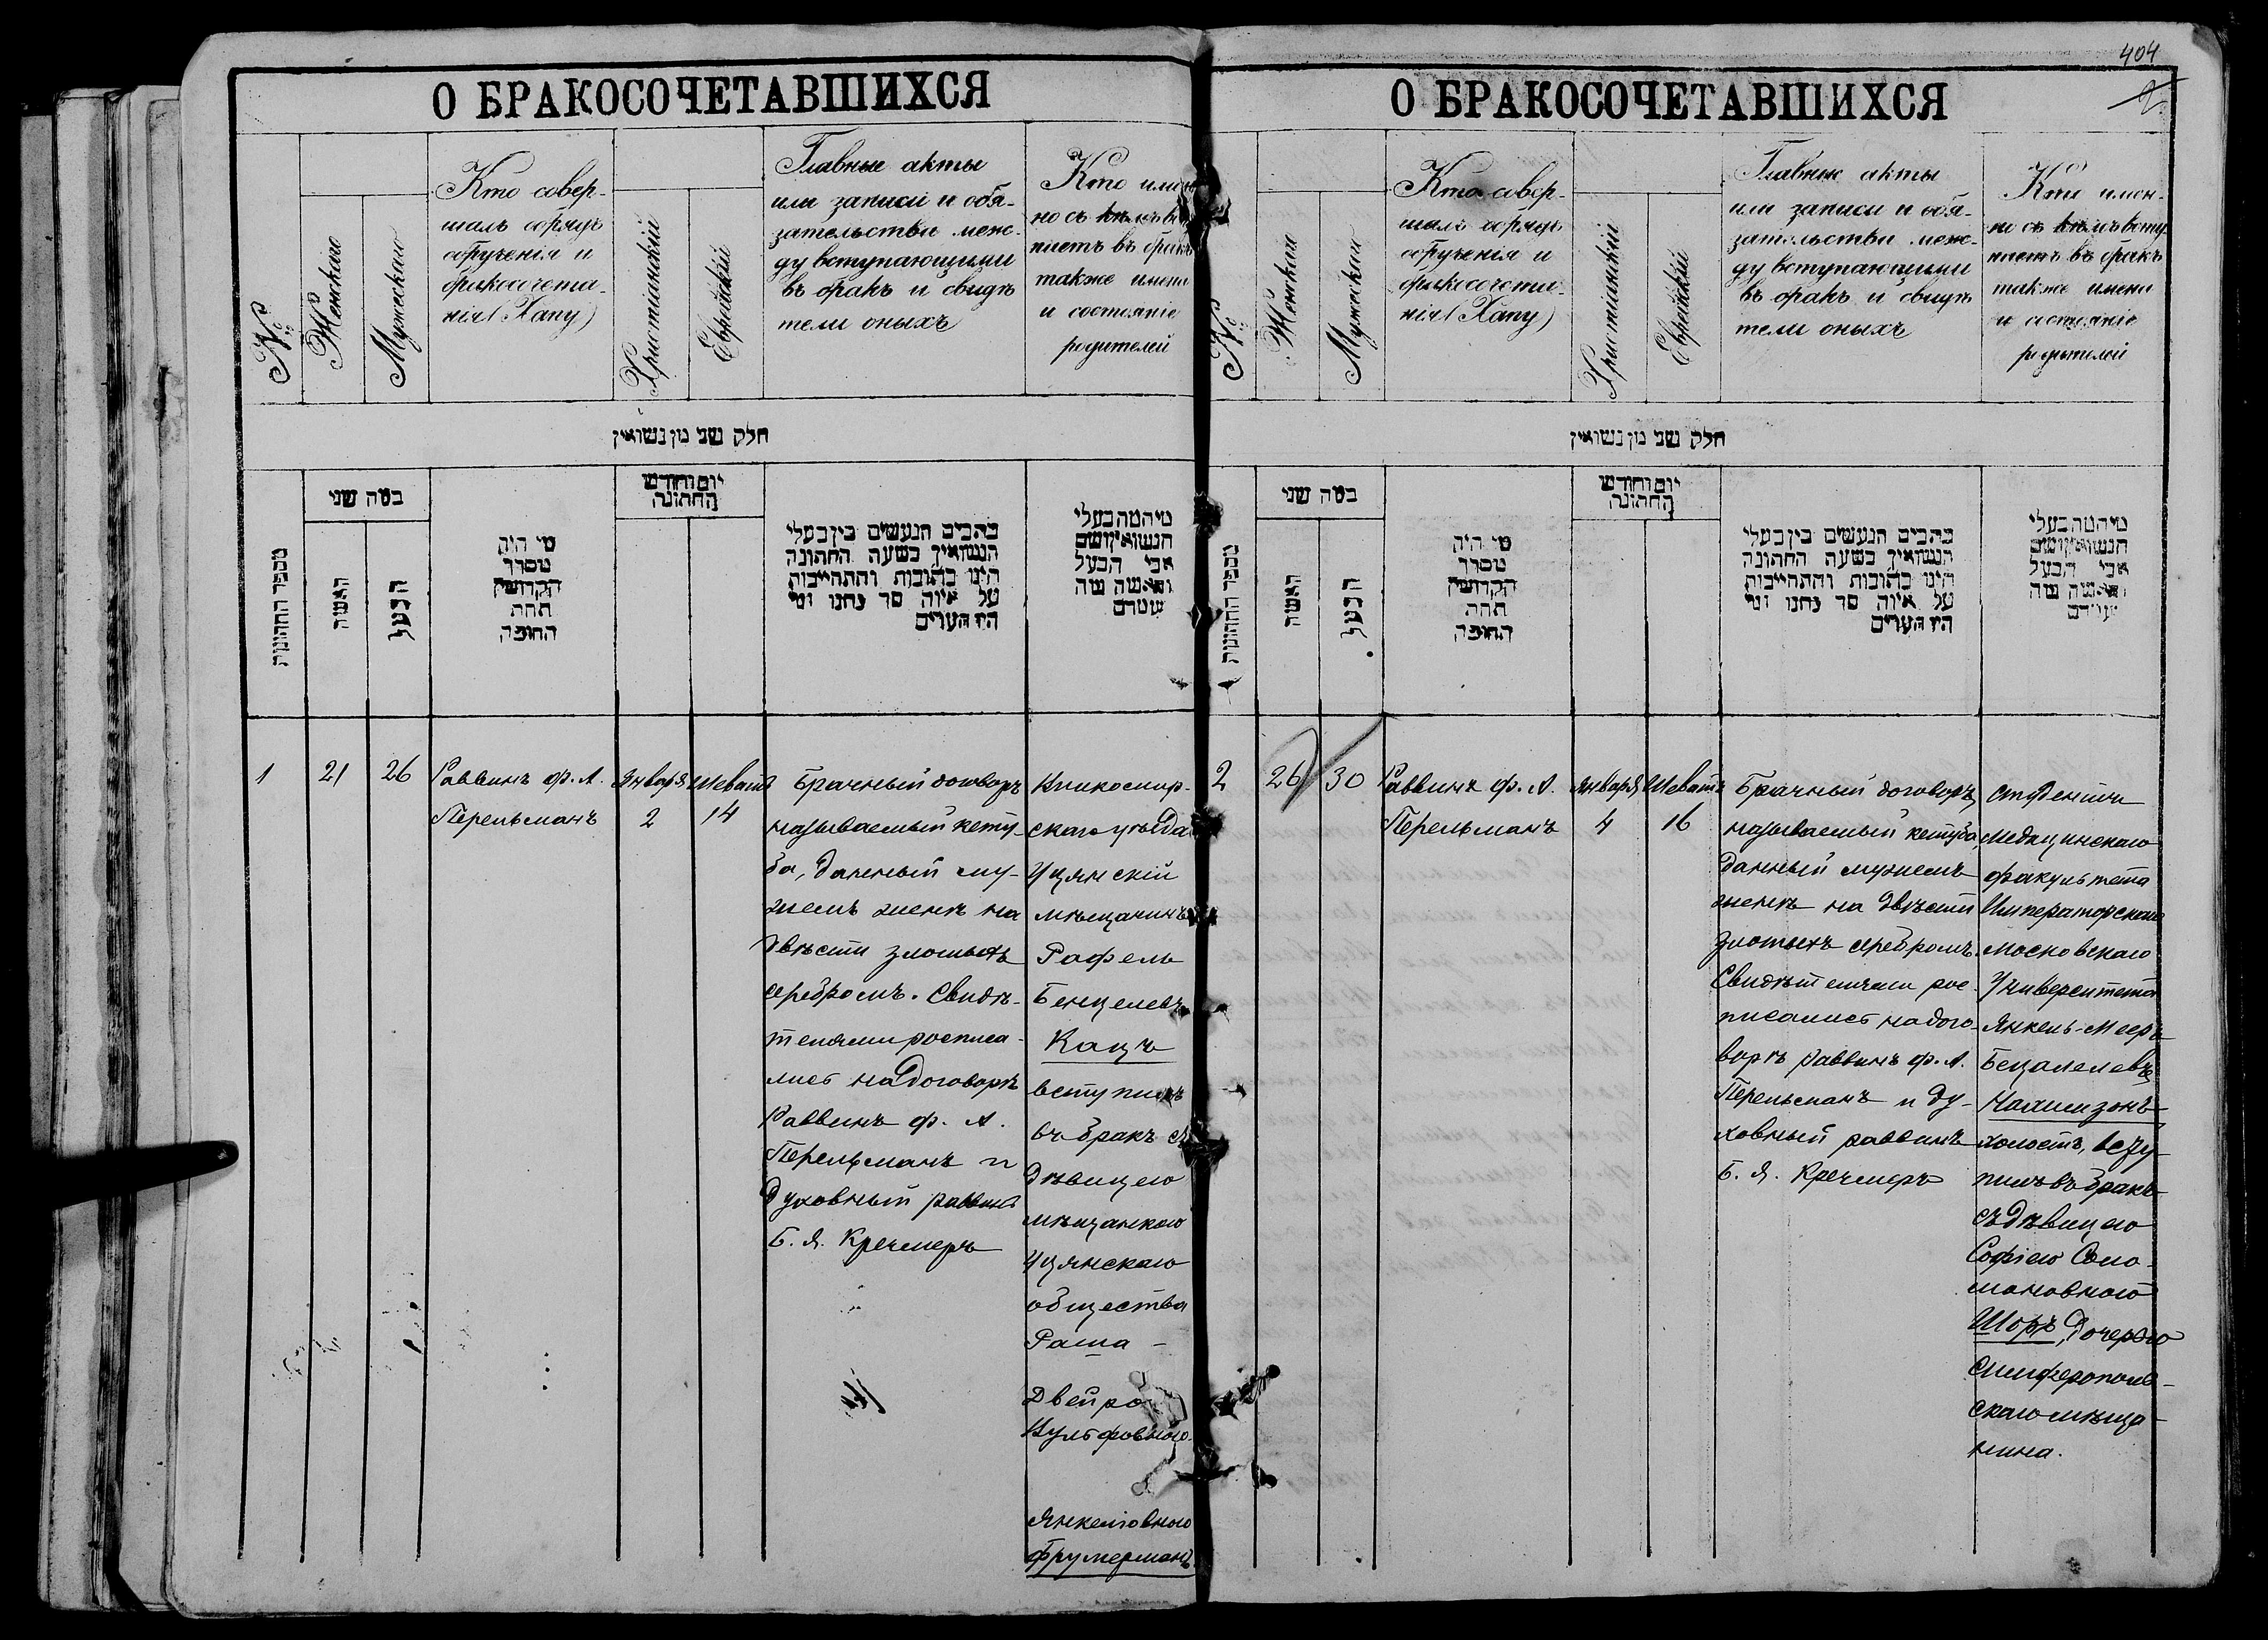 404
2
О БРАКОСОЧЕТАВШИХСЯ
№
Женская
Мужеская
Кто совер-
шалъ обрядъ
обрученія и
бракосочета-
нія (Хапу)
Христіанскій
Еврейскій
Главные акты
или записи и обя-
зательства меж-
ду вступающими
въ бракъ и свидѣ
тели оныхъ
Кто имен
но съ кѣмъ всту
паетъ въ бракъ
также имена
и состояніе
родителей
חלק שני מן נשואין
מספר החתונות
במה שני
האשה
הבעל
מי היה
מסדר
הקדושין
תחת
החופה
יום וחודש
החתונה
כתבים הנעשים בין בעלי
הנשואין בשעה החתונה
היינו כתובות והתחייבות
1
21
26
Раввинъ ф. А.
Перельманъ
Января
2
Шеватъ
14
Брачный договоръ
называемый кету-
ба, данный му-
жемъ женѣ на
двѣсти злотыхъ
серебромъ. Свидѣ-
телями росписа-
лись на договорѣ
Раввинъ ф. А.
Перельманъ и
Духовный раввинъ
Б. Я. Кремеръ
Вилкомир-
скаго уѣзда
Уцянскій
мѣщанинъ
Рафель
Бенцелевъ
Кацъ
вступилъ
въ бракъ съ
дѣвицею
мѣщанкою
Уцянскаго
общества
Раша -
Двейро
Вульфовною
Янкелювною
Фрумерманъ
О БРАКОСОЧЕТАВШИХСЯ
№
Женская
Мужеская
Кто совер-
шалъ обрядъ
обрученія и
бракосочета-
нія (Хапу)
Христіанскій
Еврейскій
Главные акты
или записи и обя-
зательства меж-
ду вступающими
въ бракъ и свидѣ
тели оныхъ
Кто имен-
но съ кѣмъ всту
паетъ въ бракъ
также имена
и состояніе
родителей
חלק שני מן נשואין
מספר החתונות
במה שני
האשה
הבעל
מי היה
מסדר
הקדושין
תחת
החופה
יום וחודש
החתונה
כתבים הנעשים בין בעלי
הנשואין בשעה החתונה
היינו כתובות והתחייבות
2
26
30
Раввинъ ф. А.
Перельманъ
Января
4
Шеватъ
16
Брачный договоръ,
называемый кетуба,
данный мужемъ
женѣ на двѣсти
злотыхъ серебромъ.
Свидѣтелями рос-
писались на дого-
ворѣ раввинъ ф. А.
Перельманъ и Ду-
ховный раввинъ
Б. Я. Кремеръ
Студентъ
Медицинскаго
факультета
Императорскаго
Московскаго
Университета
Янкель-Мееръ
Бецалелевъ
холостъ, всту-
пилъ въ бракъ
съ дѣвицею
Софіею Соло-
моновною
Шоръ, дочерью
симферополь-
скаго мѣща-
нина.